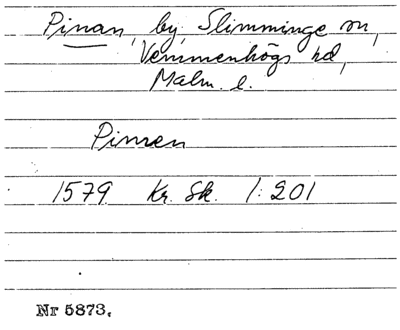 Pinan, by, Slimminge sn,
Vemmenhögs hd,
Malm. l.
Pinnen
1579 Kr. Sk. 1:201
Nr 5873.